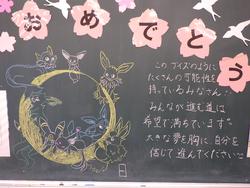 おめでとう
このブイズのように
たくさんの可能性を
持っているみなさん!
みんなが進む道は
希望で満ちています。
大きな夢を胸に、自分を
信じて進んでください